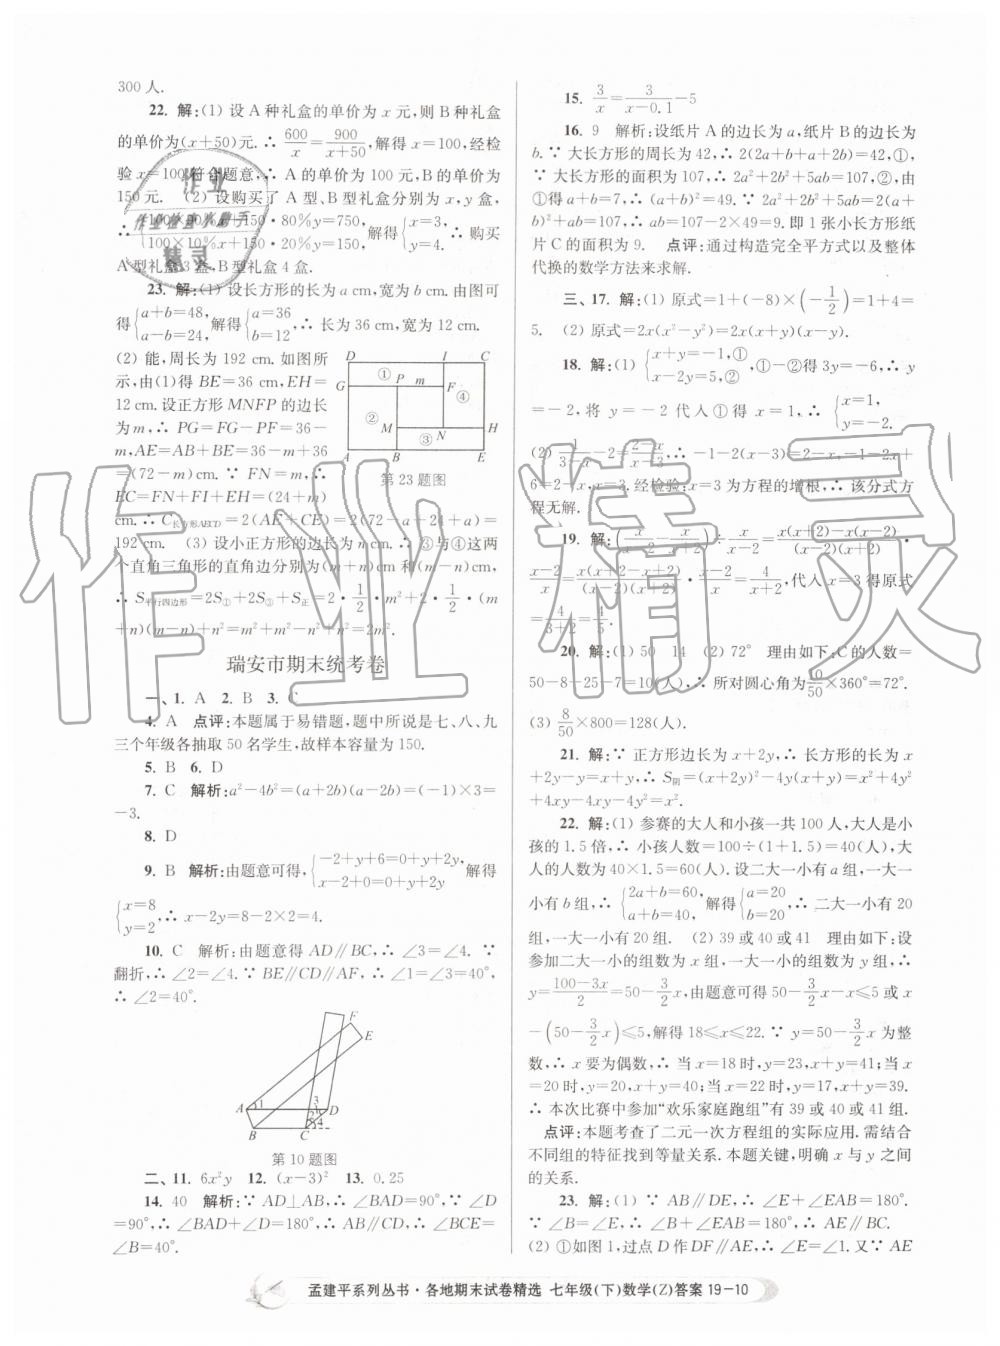 300 人.
22. 解:(1) 设 A 种礼盒的单价为 x 元,则 B 种礼盒
的单价为(x+50)元.∴ 600/x=900/(x+50),解得 x=100,经检
验 x=100 符合题意,∴ A 的单价为 100 元,B 的单价为
150 元. (2) 设购买了 A 型、B 型礼盒分别为 x,y 盒,
∴ 解得{x=3, y=4. ∴ 购买
A 型礼盒 3 盒,B 型礼盒 4 盒.
23. 解:(1) 设长方形的长为 a cm,宽为 b cm.由图可
得{a+b=48, a-b=24,解得{a=36 b=12,∴ 长为 36 cm,宽为 12 cm.
(2) 能,周长为 192 cm.如图所
示,由(1)得 BE=36 cm,EH=
12 cm.设正方形 MNFP 的边长
为 m,∴ PG=FG-PF=36-
m,AE=AB+BE=36-m+36
=(72-m)cm.∵ FN=m,∴
EC=FN+FI+EH=(24+m)
cm.∴ C长方形ABCD=2(AE+CE)=2(72-a+24+a)=
192 cm. (3) 设小正方形的边长为 n cm.∴ ③与④这两
个直角三角形的直角边分别为(m+n)cm 和(m-n)cm.
∴ S平行四边形=2S①+2S③+S正=2·1/2·m²+2·1/2·(m
+n)(m-n)+n²=m²+m²-n²+n²=2m².
D I C
G ① P m F ④
② M ③ N H
A B E
第 23 题图
瑞安市期末统考卷
一、1. A 2. B 3. C
4. A 点评:本题属于易错题,题中所说是七、八、九
三个年级各抽取 50 名学生,故样本容量为 150.
5. B 6. D
7. C 解析:a²-4b²=(a+2b)(a-2b)=(-1)×3=
-3.
8. D
9. B 解析:由题意可得,{-2+y+6=0+y+2y, x-2+0=0+y+2y 解得
{x=8 y=2,∴ x-2y=8-2×2=4.
10. C 解析:由题意得 AD∥BC,∴ ∠3=∠4. ∵
翻折,∴ ∠2=∠4.∵ BE∥CD∥AF,∴ ∠1=∠3=40°,
∴ ∠2=40°.
F
E
A 1 3 D
B C 2 4
第 10 题图
二、11. 6x²y 12. (x-3)² 13. 0.25
14. 40 解析:∵ AD⊥AB,∴ ∠BAD=90°,∵ ∠D
=90°,∴ ∠BAD+∠D=180°,∴ AB∥CD,∴ ∠BCE=
∠B=40°.
15. 3/x=3/(x-0.1)-5
16. 9 解析:设纸片 A 的边长为 a,纸片 B 的边长为
b.∵ 大长方形的周长为 42,∴ 2(2a+b+a+2b)=42,①,
∵ 大长方形的面积为 107,∴ 2a²+2b²+5ab=107,②,由
①得 a+b=7,∴ (a+b)²=49.∵ 2a²+2b²+
5ab=107,∴ ab=107-2×49=9.即 1 张小长方形纸
片 C 的面积为 9. 点评:通过构造完全平方式以及整体
代换的数学方法来求解.
三、17. 解:(1) 原式=1+(-8)×(-1/2)=1+4=
5. (2) 原式=2x(x²-y²)=2x(x+y)(x-y).
18. 解:(1) {x+y=-1,① x-2y=5,②,①-②得 3y=-6,∴ y
=-2,将 y=-2 代入①得 x=1,∴ {x=1, y=-2.
(2) 1/(3-x)-2=(2-x)/(x-3),∴ -1-2(x-3)=2-x,-1-2x+
6=2-x,x=3.经检验:x=3 为方程的增根,∴ 该分式方
程无解.
19. 解:(x/(x-2)-x/(x+2))÷x/(x-2)=(x(x+2)-x(x-2))/((x-2)(x+2))·
(x-2)/x=x(x+2-x+2)/((x-2)(x+2))·(x-2)/x=4/(x+2),代入 x=3 得原式
=4/(3+2)=4/5.
20. 解:(1) 50 14 (2) 72° 理由如下:C 的人数=
50-8-25-7=10(人),∴ 所对圆心角为10/50×360°=72°.
(3) 8/50×800=128(人).
21. 解:∵ 正方形边长为 x+2y,∴ 长方形的长为 x
+2y-y=x+y,∴ S阴=(x+2y)²-4y(x+y)=x²+4y²
+4xy-4xy-4y²=x².
22. 解:(1) 参赛的大人和小孩一共 100 人,大人是小
孩的 1.5 倍,∴ 小孩人数=100÷(1+1.5)=40(人),大
人的人数为 40×1.5=60(人).设二大一小有 a 组,一大一
小有 b 组,∴ {2a+b=60, a+b=40, 解得{a=20 b=20,∴ 二大一小有 20
组,一大一小有 20 组. (2) 39 或 40 或 41 理由如下:设
参加二大一小的组数为 x 组,一大一小的组数为 y 组,∴
y=(100-3x)/2=50-3/2x,由题意可得 50-3/2x-x≤5 或 x
-(50-3/2x)≤5,解得 18≤x≤22.∵ y=50-3/2x 为整
数,∴ x 要为偶数,∴ 当 x=18 时,y=23,x+y=41;当 x
=20 时,y=20,x+y=40;当 x=22 时,y=17,x+y=39.
∴ 本次比赛中参加“欢乐家庭跑组”有 39 或 40 或 41 组.
点评:本题考查了二元一次方程组的实际应用.需结合
不同组的特征找到等量关系.本题关键,明确 x 与 y 之间
的关系.
23. 解:(1) ∵ AB∥DE,∴ ∠E+∠EAB=180°.
∵ ∠B=∠E,∴ ∠B+∠EAB=180°,∴ AE∥BC.
(2) ①如图 1,过点 D 作 DF∥AE,∴ ∠E=∠1.又∵ AE
孟建平系列丛书·各地期末试卷精选 七年级(下)数学(Z)答案 19-10
作业精灵